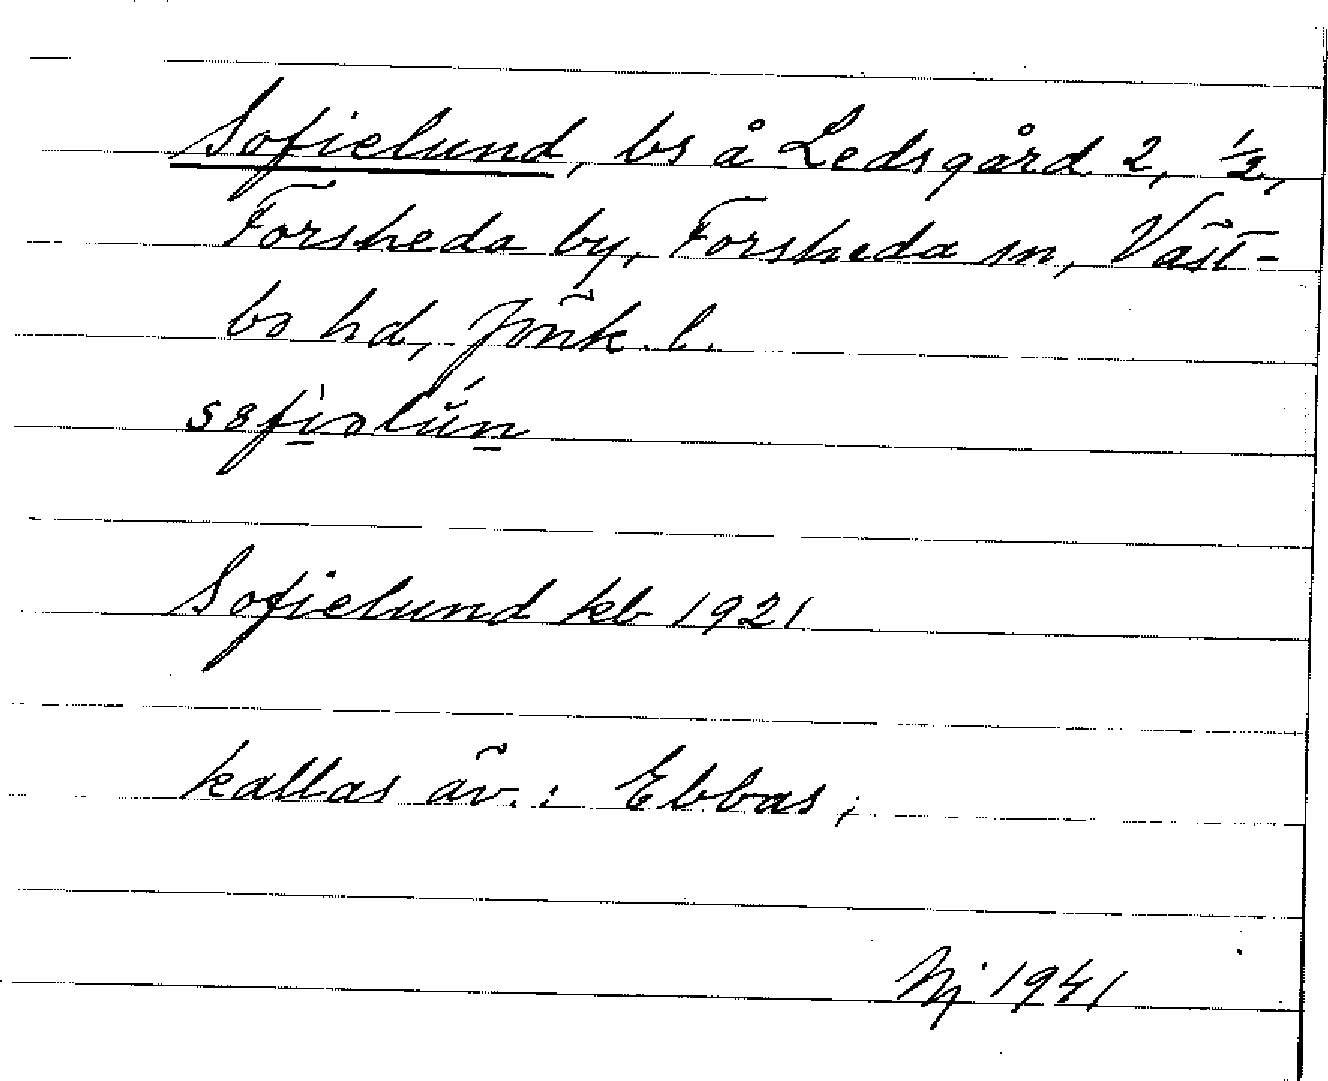 Sofielund, bs å Ledsgård 2, 1/2,
Forsheda by, Forsheda sn, Väst-
bo hd, Jönk. l.
Sofielund kb 1921
kallas äv.: Ebbas;
1941